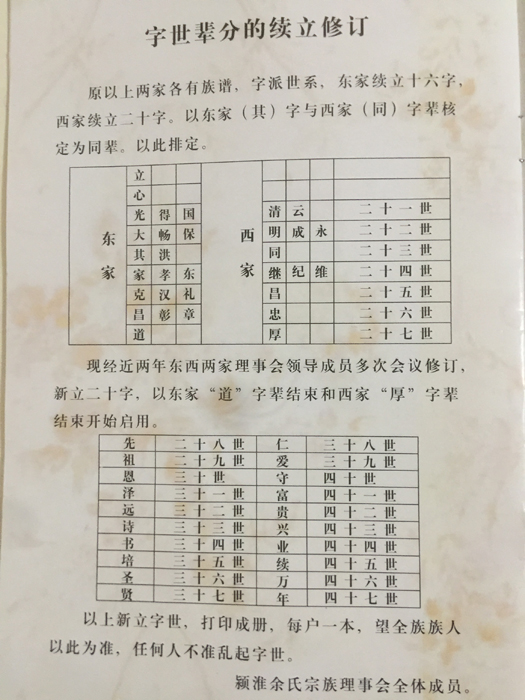 字世辈分的续立修订
原以上两家各有族谱，字派世系，东家续立十六字，
西家续立二十字。以东家（其）字与西家（同）字辈核
定为同辈。以此排定。
东家
立
心
光 得 国
大 畅 保
其 洪
家 孝 东
克 汉 礼
昌 彰 章
道
西家
清 云 二十一世
明 成 永 二十二世
同 二十三世
继 纪 维 二十四世
昌 二十五世
忠 二十六世
厚 二十七世
现经近两年东西两家理事会领导成员多次会议修订，
新立二十字，以东家“道”字辈结束和西家“厚”字辈
结束开始启用。
先 二十八世 仁 三十八世
祖 二十九世 爱 三十九世
恩 三十世 守 四十世
泽 三十一世 富 四十一世
远 三十二世 贵 四十二世
诗 三十三世 兴 四十三世
书 三十四世 业 四十四世
培 三十五世 续 四十五世
圣 三十六世 万 四十六世
贤 三十七世 年 四十七世
以上新立字世，打印成册，每户一本，望全族族人
以此为准，任何人不准乱起字世。
颖淮余氏宗族理事会全体成员。